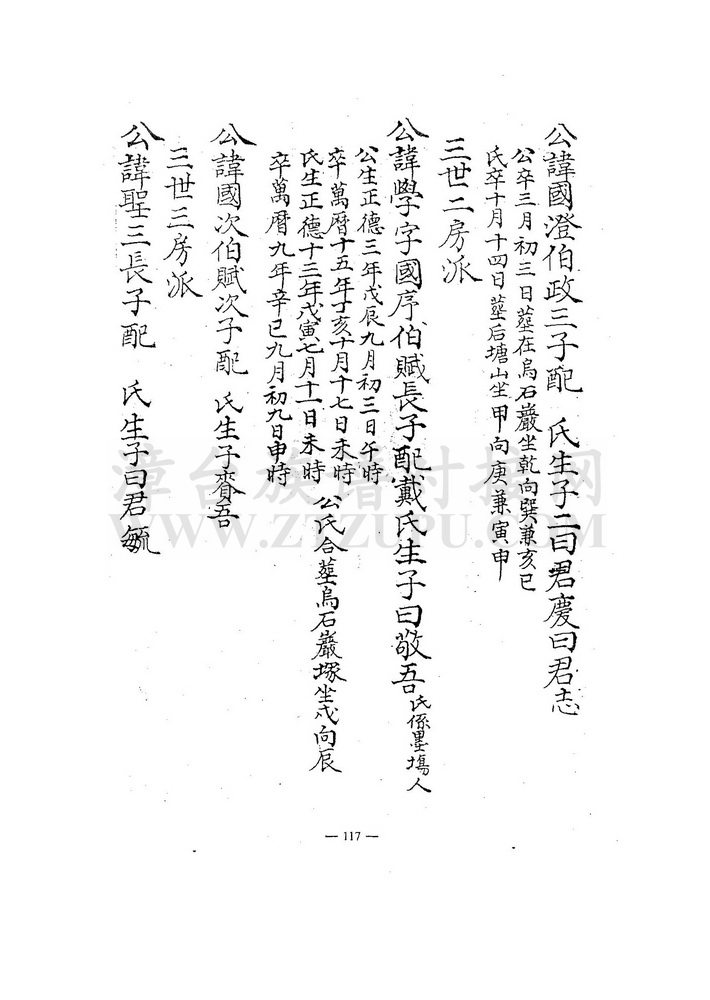 公諱國澄伯政三子配　氏生子二曰君慶曰君志
公卒三月初三日塟在烏石巖坐乾向巽兼亥巳
氏卒十月十四日塟后塘山坐甲向庚兼寅申
三世二房派
公諱學字國序伯賦長子配戴氏生子曰敬吾氏係墨塲人
公生正德三年戊辰九月初三日午時
卒萬曆十五年丁亥十月十七日未時
氏生正德十三年戊寅七月十一日未時
卒萬曆九年辛巳九月初九日申時
公氏合塟烏石巖塚坐戌向辰
公諱國次伯賦次子配　氏生子賚吾
三世三房派
公諱聖三長子配　氏生子曰君毓
— 117 —
漳台族谱对接网
WWW.ZTZUPU.COM